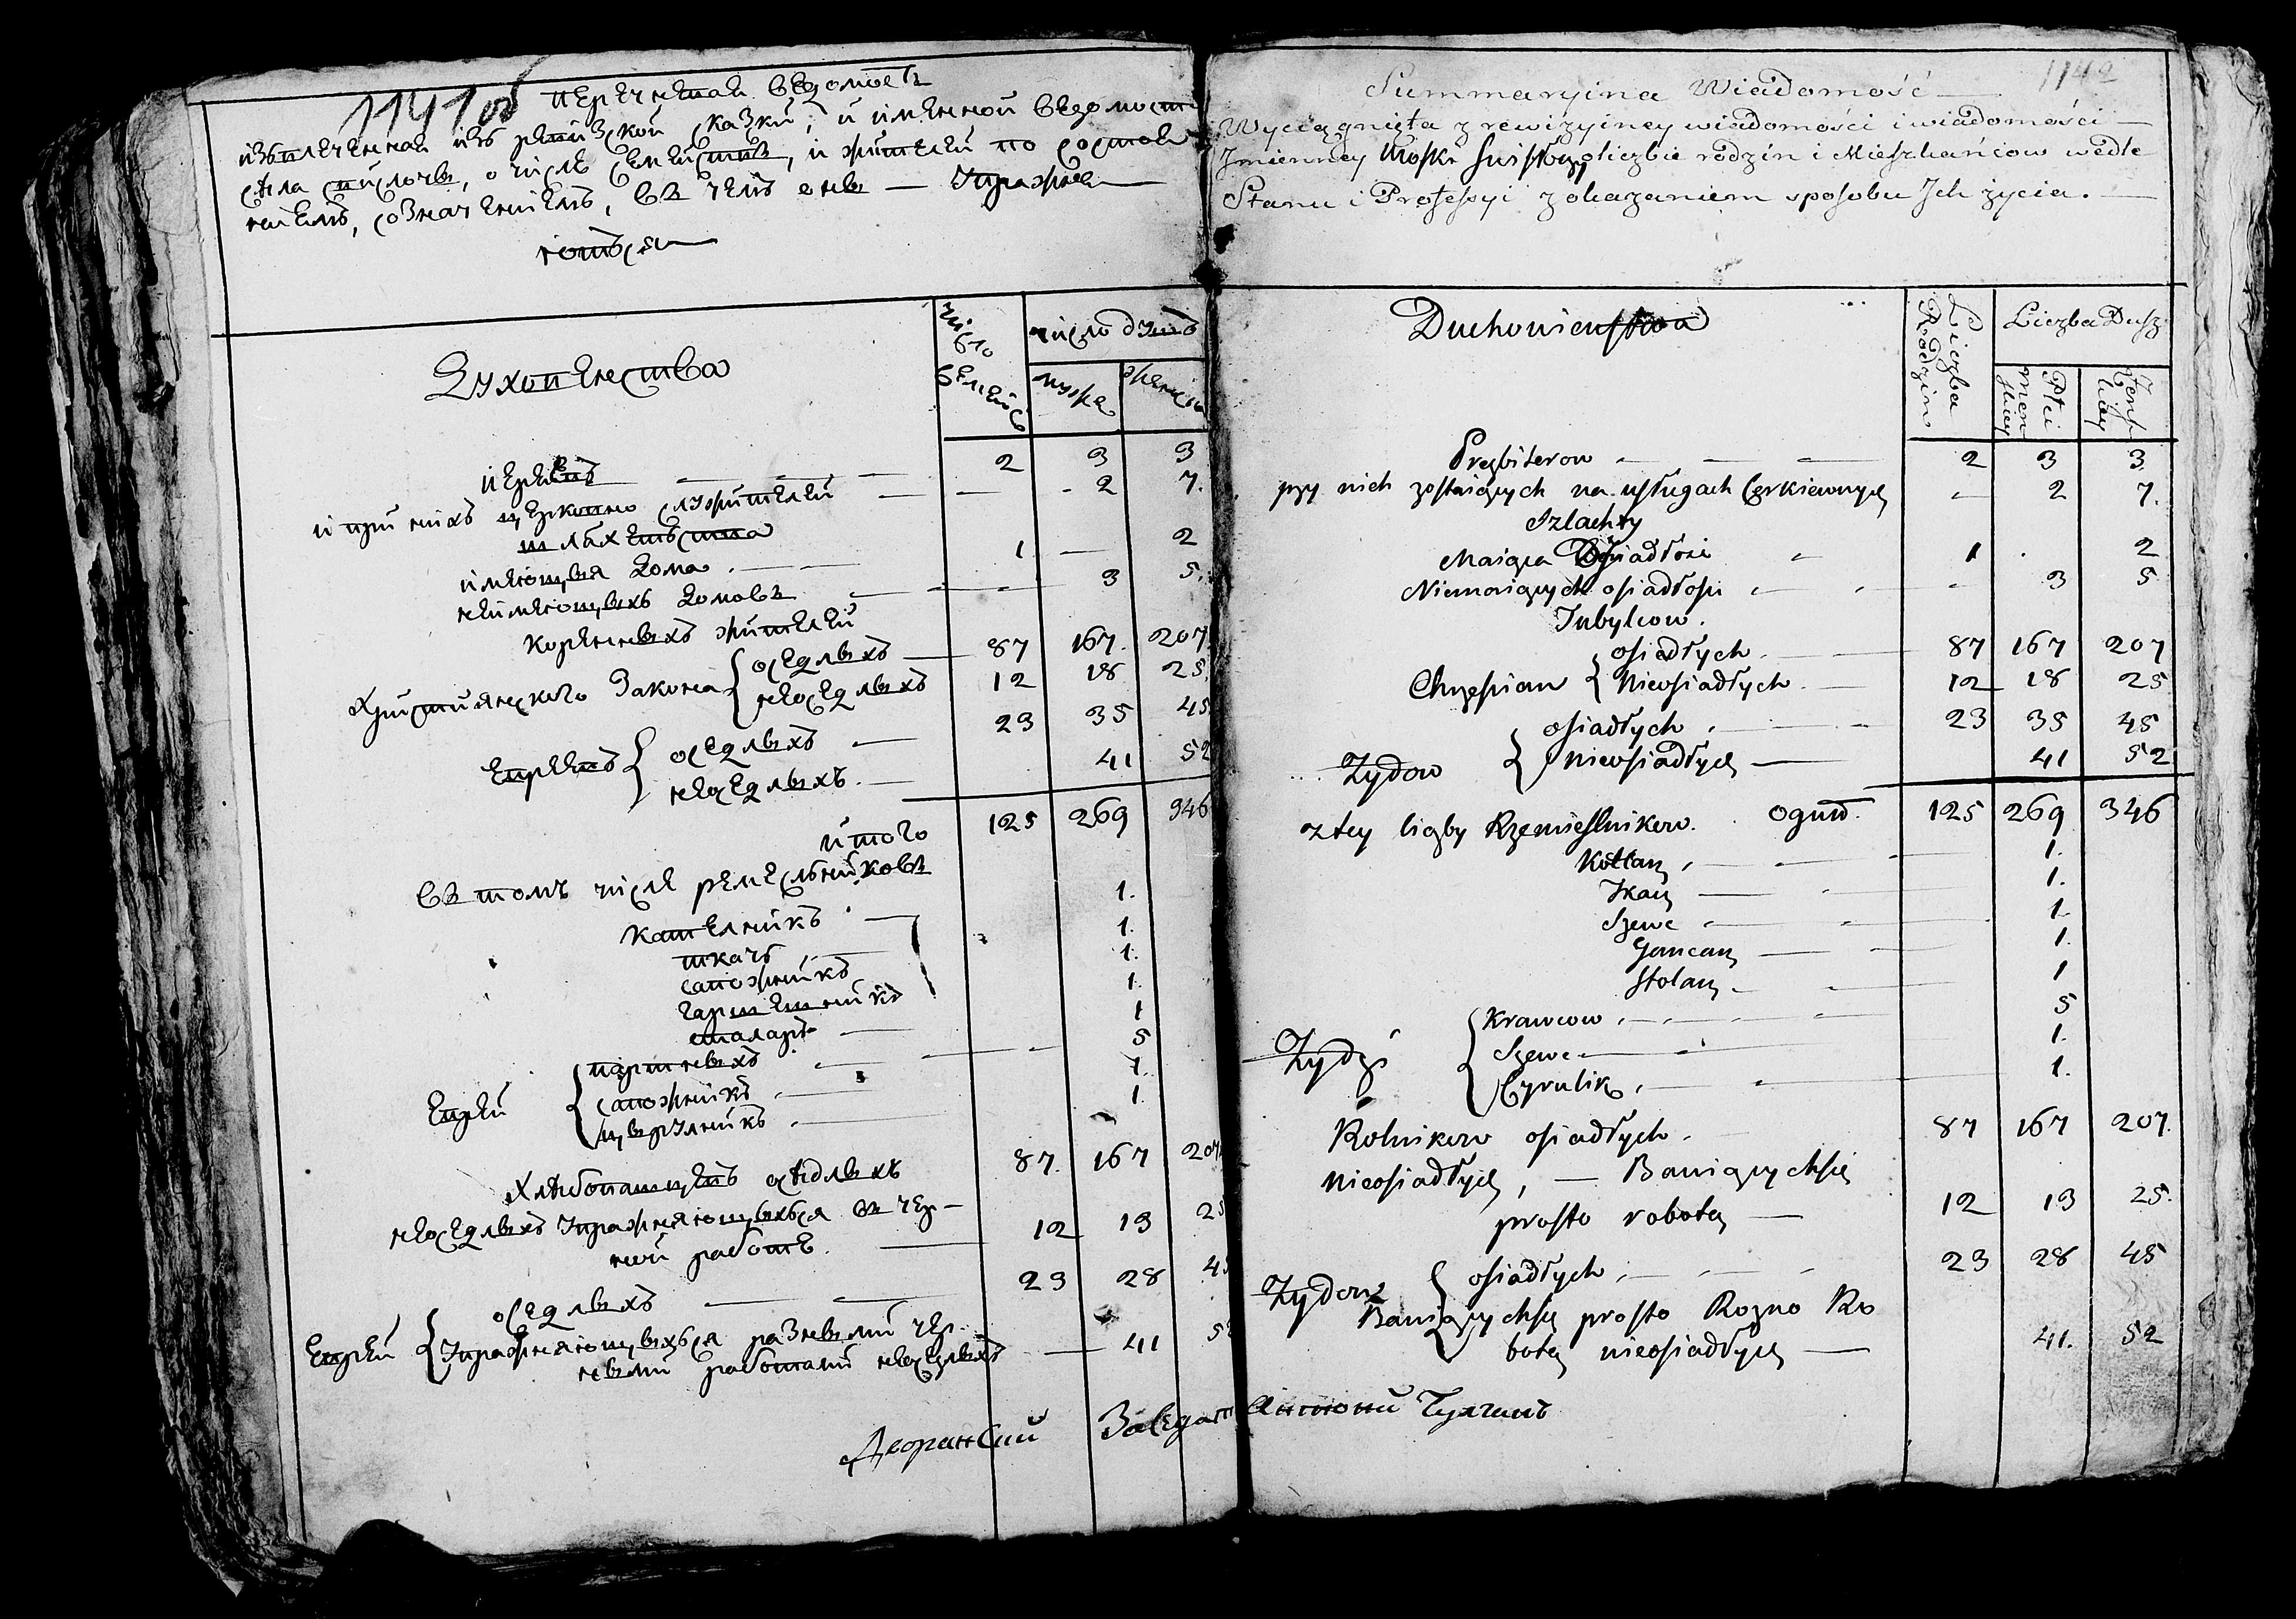 1141 об
перечневая ведомость
извлеченная изъ ревизской сказки, и имянной ведомости
села, о числе семействъ, и жителей по состоя
ниемъ, означениемъ, въ чемъ оны — упражня
ютъся
Духовенства
число семействъ
число душъ
мужска
женска
иереевъ 2 3 3
и при нихъ церковно служителей — 2 7.
шляхетьства
имеющыя дома 1 — 2
неимеющыхъ домовъ — 3 5.
коренныхъ жителей
Християнского Закона { оседлыхъ 87 167. 207
неоседлыхъ 12 18 25.
Евреевъ { оседлыхъ 23 35 45
неоседлыхъ. 41 52
итого 125 269 346
въ томъ числе ремесльниковъ
кательникъ 1.
ткачъ 1.
сапожникъ 1.
1.
столяръ 1
Евреи { портныхъ 5
сапожникъ 1.
цырулникъ 1.
Хлебопашцевъ оседлыхъ 87. 167 207
неоседлыхъ упражняющыхься въ чер-
ной работе. 12 13 25
Евреи { оседлыхъ 23 28 45
упражняющыхься разными чер-
ными работами неоседлыхъ 41 52
1142
Summaryina Wiadomość
Wyciągnięta z rewizyiney wiadomości i wiadomości
Jmienney o liczbie rodzin i Mieszkańcow wedle
Stanu i Professyi z okazaniem sposobu Jch życia.
Duchowienstwa
Liczba Rodzin
Liczba Dusz
Płci Menskiey
Żenskiey
Prezbiterow 2 3 3
przy nich zostaiących na usługach Cerkiewnych — 2 7.
Szlachty
Maiąca Osiadłosci 1 . 2
Niemaiących osiadłosci — 3 5
Tubylcow.
Chrzescian { osiadłych 87 167 207
Nieosiadłych. 12 18 25
Zydow { osiadłych 23 35 45
Nieosiadłych 41 52
z tey liczby Rzemieslnikow. Ogułł. 125 269 346
Kotlarz 1.
Tkacz 1.
Szewc 1
Garncarz 1.
Stolarz 1
Zydzi { Krawcow 5
Szewc 1.
Cyrulik 1.
Rolnikow osiadłych. 87 167 207.
Nieosiadłych, — Bawiących się
prosto robotą 12 13 25.
Zydow { osiadłych 23 28 45
Bawiących się prosto Rozno Ro
botą nieosiadłych 41. 52